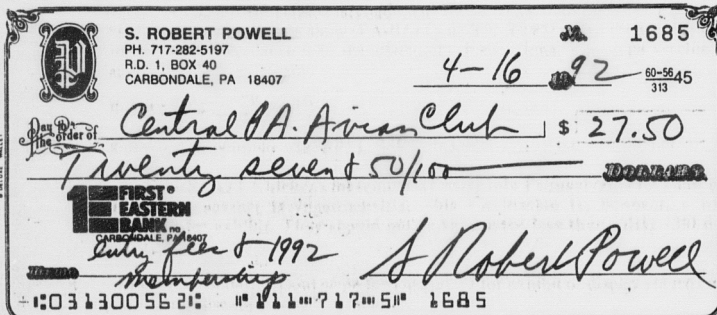 S. ROBERT POWELL
PH. 717-282-5197
R.D. 1, BOX 40
CARBONDALE, PA 18407
1685
4-16 19 92
60-5645
313
Pay to the order of Central PA. Avian Club $ 27.50
Twenty seven & 50/100 DOLLARS
FIRST EASTERN BANK n.a.
CARBONDALE, PA 18407
Memo Entry fees & 1992
membership
S Robert Powell
⑆031300562⑆ ⑈111⑉717⑉5⑈ 1685